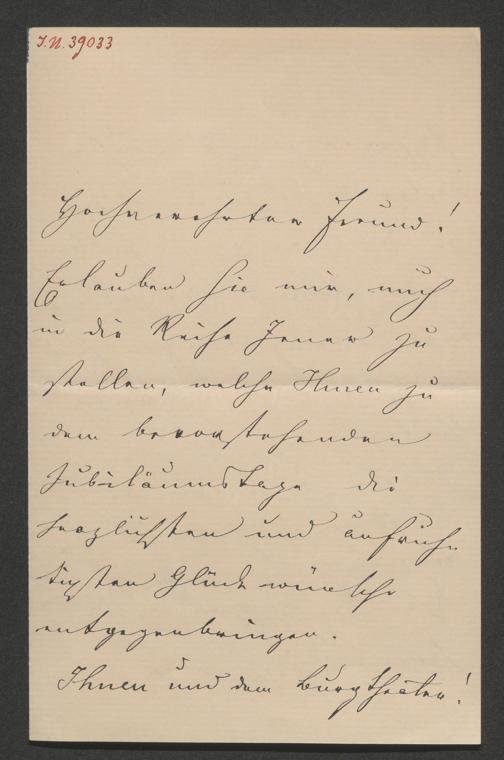 J.N. 39033
Hochverehrter Freund!
Erlauben Sie mir, mich
in die Reihe Jener zu
stellen, welche Ihnen zu
dem bevorstehenden
Jubiläumstage die
herzlichsten und aufrich-
tigsten Glückwünsche
entgegenbringen.
Ihnen und dem Burgtheater!